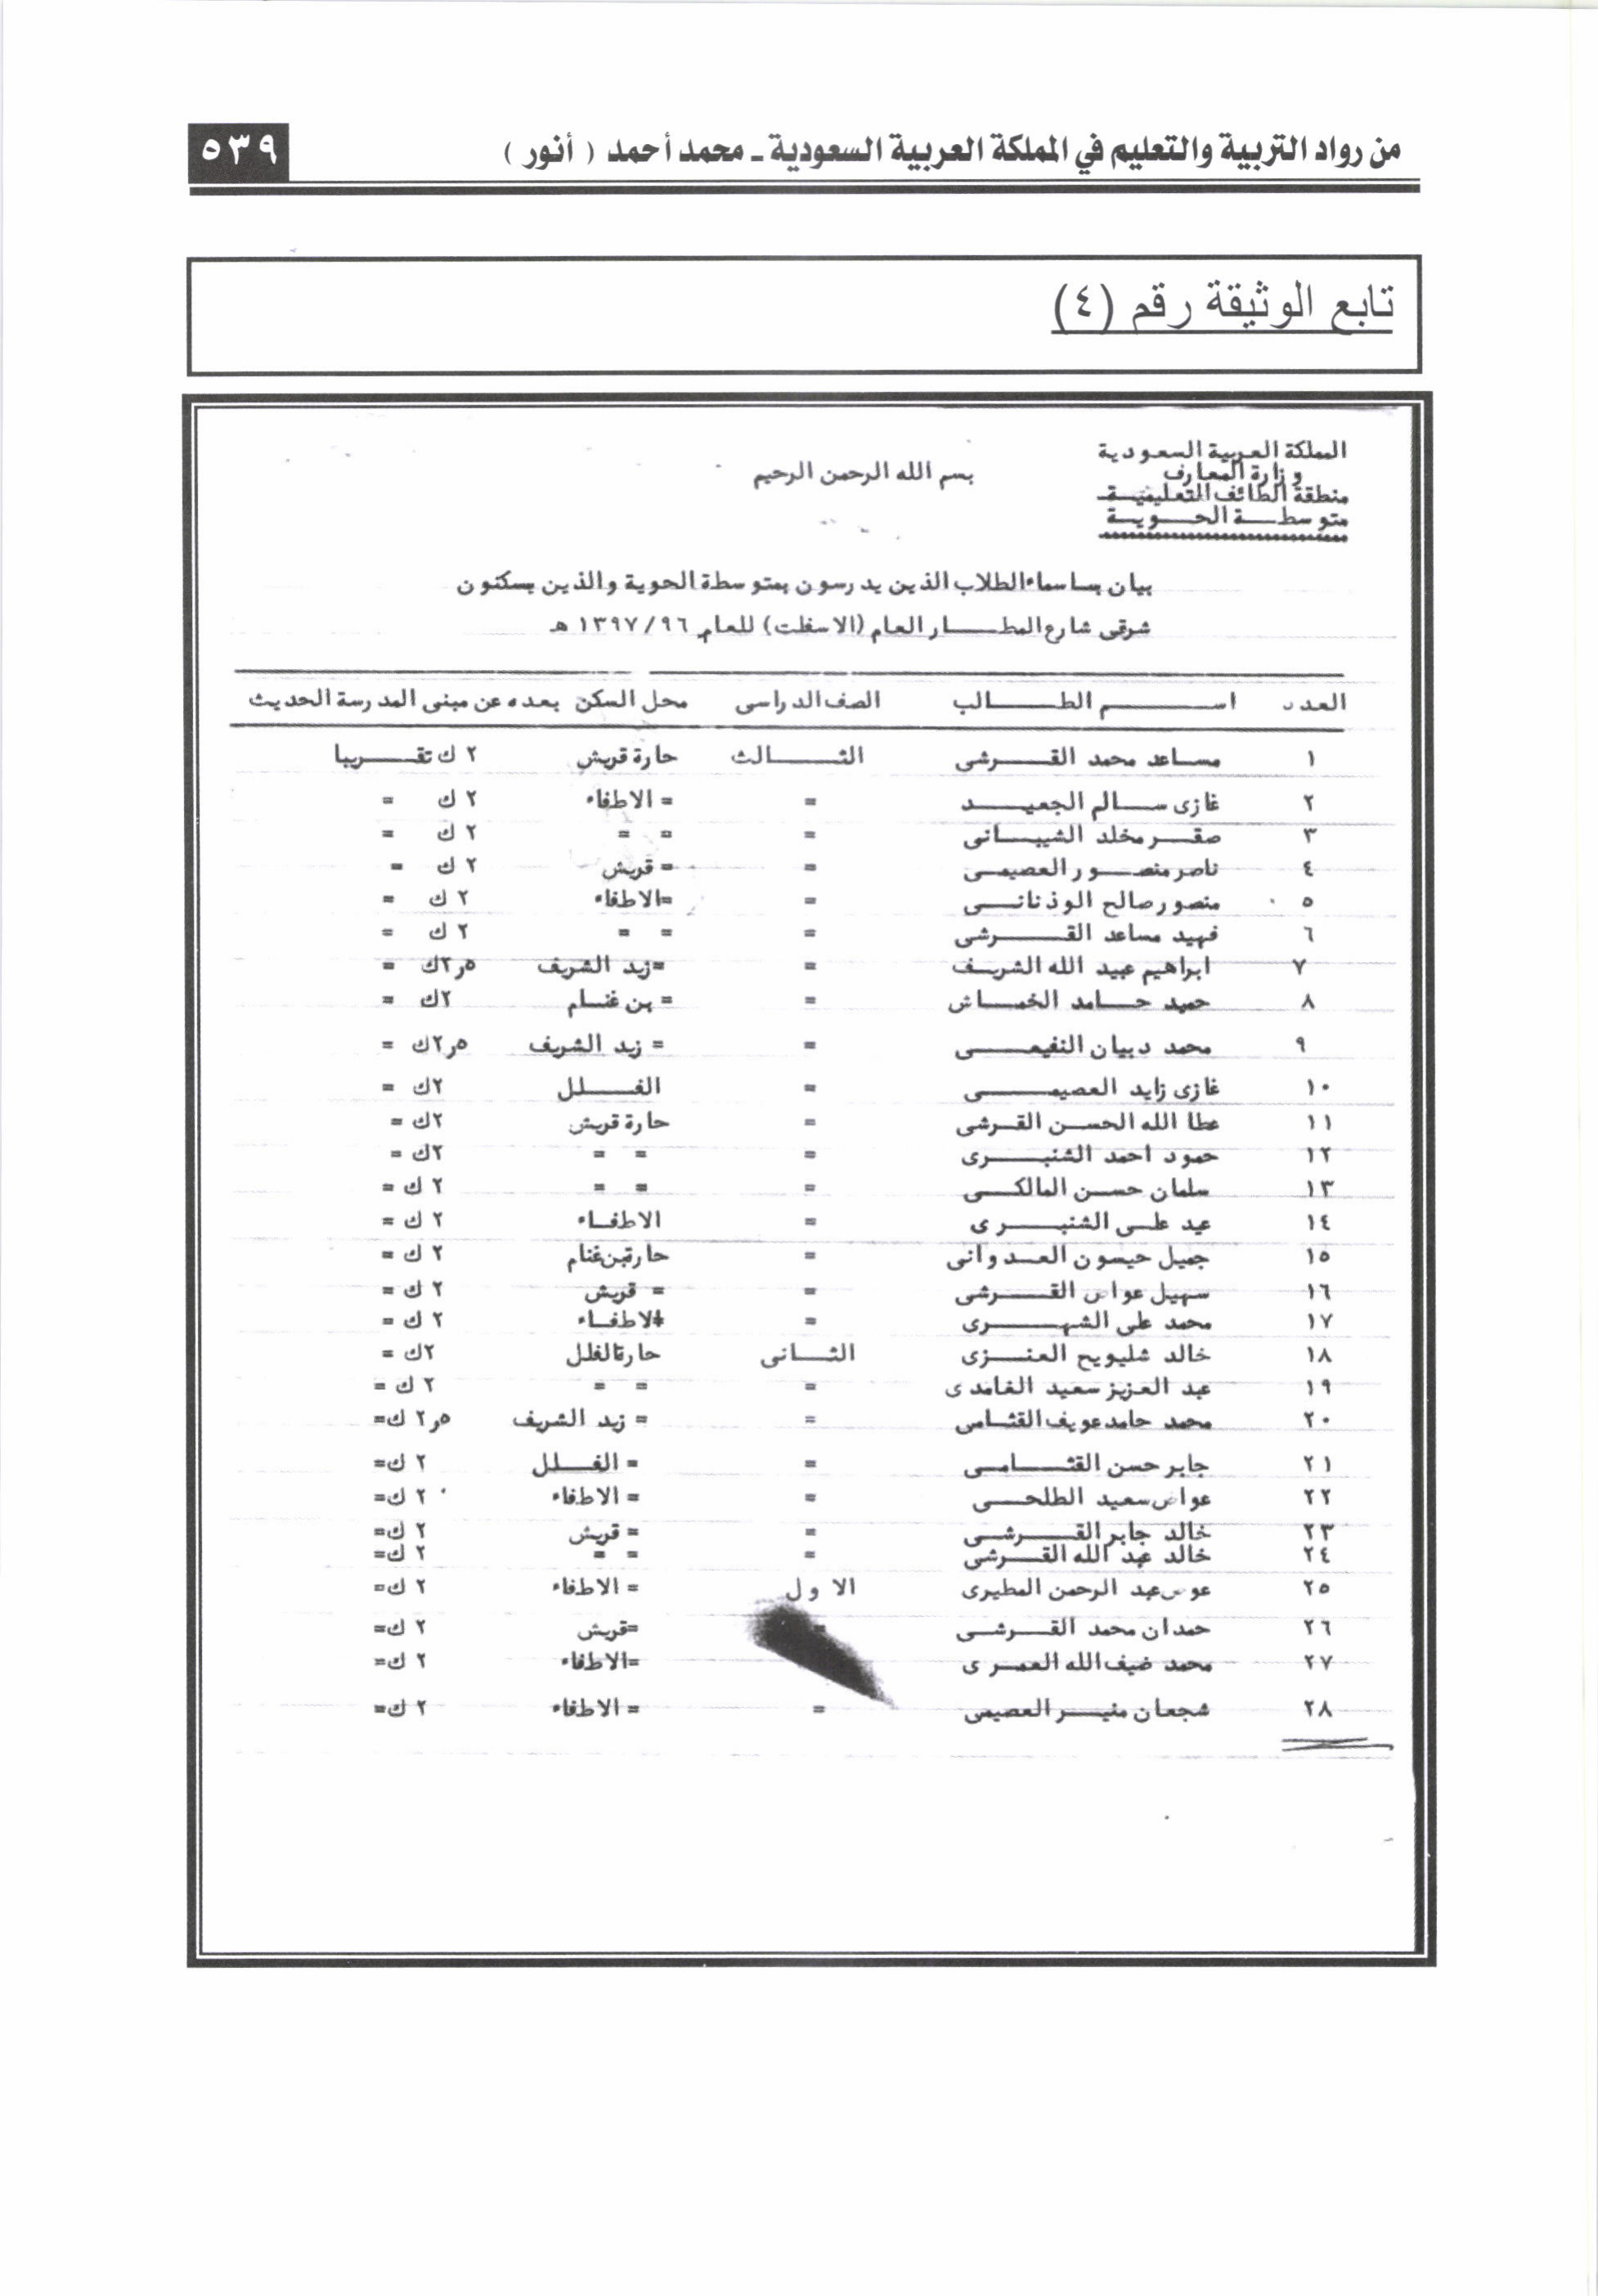 من رواد التربية والتعليم في المملكة العربية السعودية ـ محمد أحمد ( أنور )
٥٣٩
تابع الوثيقة رقم (٤)
المملكة العربية السعودية
وزارة المعارف
منطقة الطائف التعليمية
متوسطة الحوية
بسم الله الرحمن الرحيم
بيان باسماء الطلاب الذين يدرسون بمتوسطة الحوية والذين يسكنون
شرقى شارع المطار العام (الاسفلت) للعام ١٣٩٧/٩٦ هـ
العدد اسم الطالب الصف الدراسى محل السكن بعده عن مبنى المدرسة الحديث
١ مساعد محمد القرشى الثالث حارة قريش ٢ ك تقريبا
٢ غازى سالم الجعيد = = الاطفاء ٢ ك =
٣ صقر مخلد الشيبانى = = = ٢ ك =
٤ ناصر منصور العصيمى = = قريش ٢ ك =
٥ منصور صالح الوذنانى = =الاطفاء ٢ ك =
٦ فهيد مساعد القرشى = = = ٢ ك =
٧ ابراهيم عبيد الله الشريف = =زيد الشريف ٢٫٥ك =
٨ حميد حامد الخماش = = بن غنام ٢ك =
٩ محمد دبيان النفيعى = = زيد الشريف ٢٫٥ك =
١٠ غازى زايد العصيمى = الفلل ٢ك =
١١ عطا الله الحسن القرشى = حارة قريش ٢ك =
١٢ حمود احمد الشنبرى = = = ٢ك =
١٣ سلمان حسن المالكى = = = ٢ ك =
١٤ عيد على الشنبرى = الاطفاء ٢ ك =
١٥ جميل حيسون العدوانى = حارة بن غنام ٢ ك =
١٦ سهيل عواض القرشى = = قريش ٢ ك =
١٧ محمد على الشهرى = الاطفاء ٢ ك =
١٨ خالد شليويح العنزى الثانى حارة الفلل ٢ك =
١٩ عبد العزيز سعيد الغامدى = = = ٢ ك =
٢٠ محمد حامد عويف القثامى = = زيد الشريف ٢٫٥ ك=
٢١ جابر حسن القثامى = = الفلل ٢ ك=
٢٢ عواض سعيد الطلحى = = الاطفاء ٢ ك=
٢٣ خالد جابر القرشى = = قريش ٢ ك=
٢٤ خالد عبد الله القرشى = = = ٢ ك=
٢٥ عوض عبد الرحمن المطيرى الاول = الاطفاء ٢ ك=
٢٦ حمدان محمد القرشى = =قريش ٢ ك=
٢٧ محمد ضيف الله العمرى =الاطفاء ٢ ك=
٢٨ شجعان منير العصيمى = = الاطفاء ٢ ك=